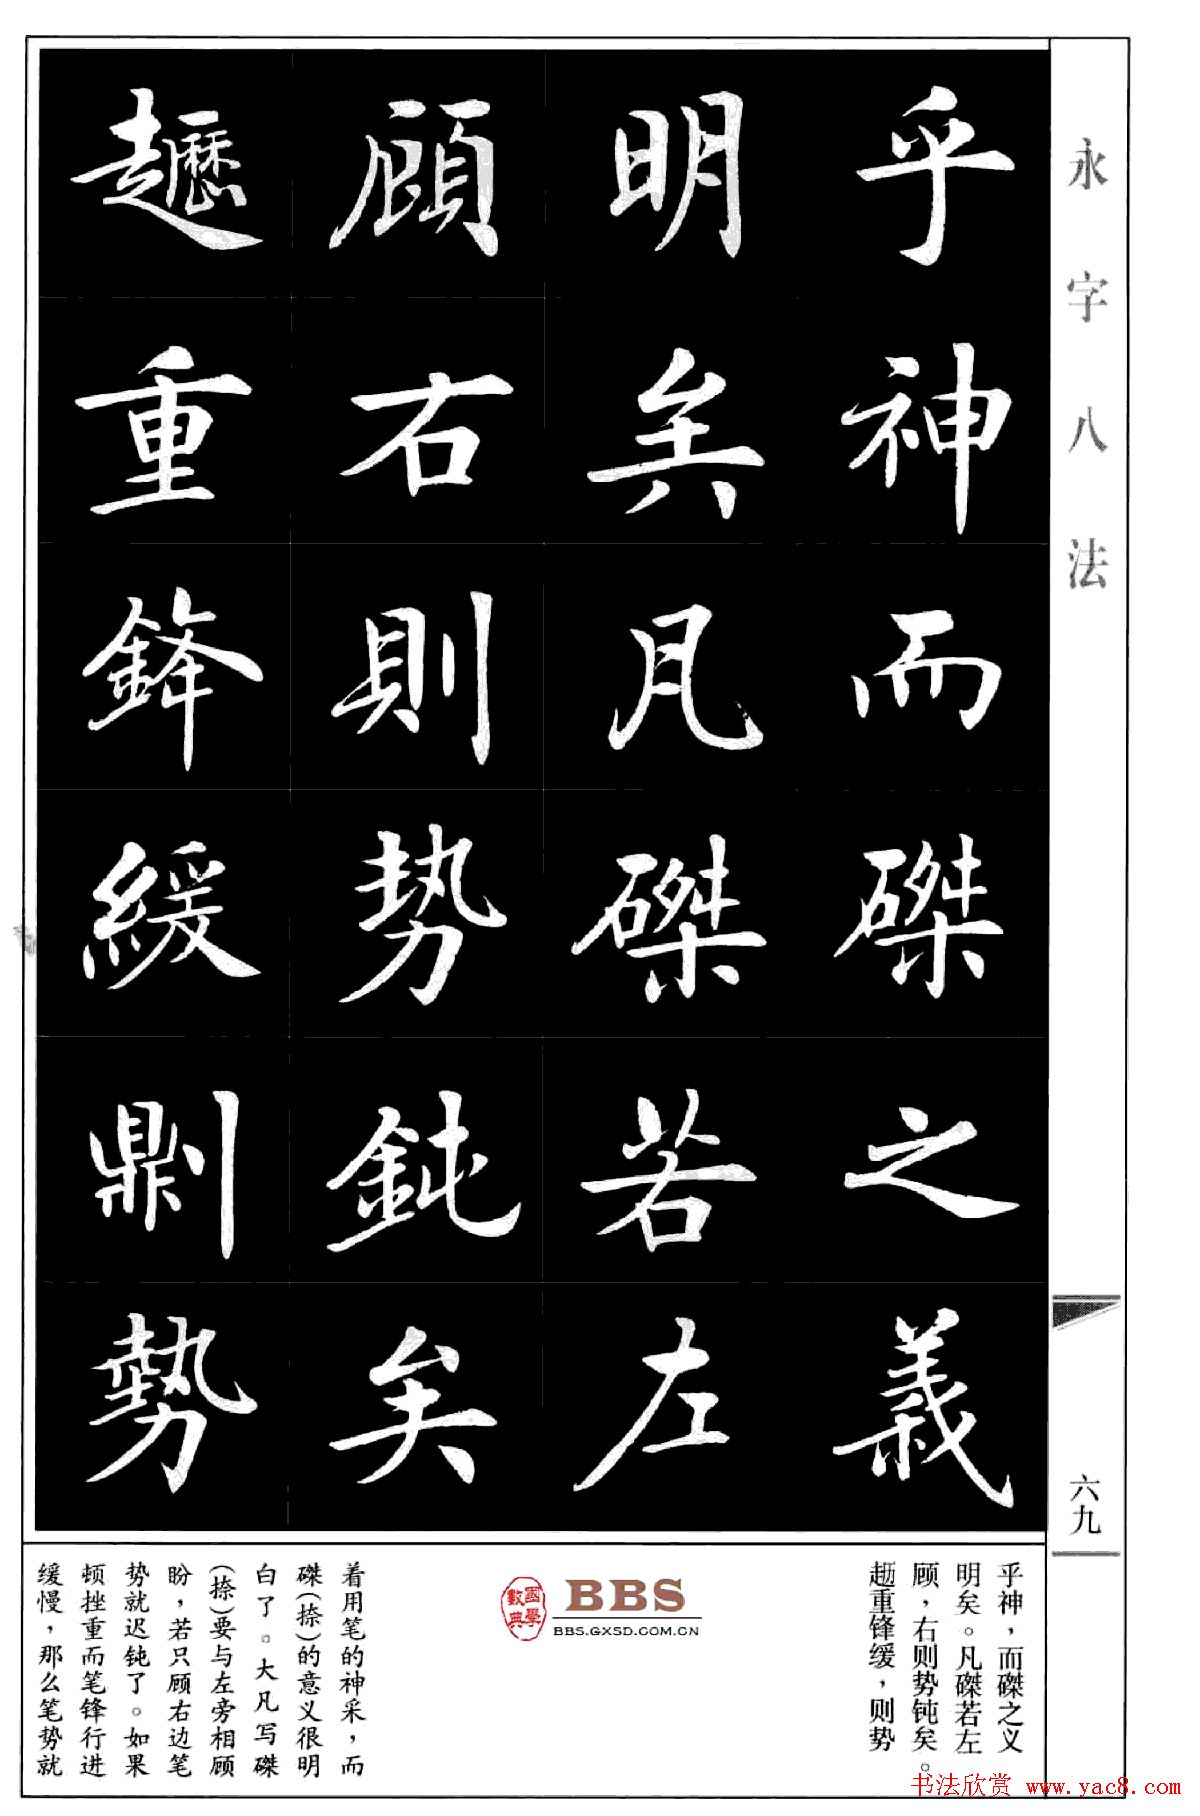 永字八法
乎神而磔之義
明矣凡磔若左
顧右則勢鈍矣
趲重鋒緩劓勢
六九
乎神，而磔之义
明矣。凡磔若左
顾，右则势钝矣。
重锋缓，则势
BBS
BBS.GXSD.COM.CN
國學數典
着用笔的神采，而
磔(捺)的意义很明
白了。大凡写磔
(捺)要与左旁相顾
盼，若只顾右边笔
势就迟钝了。如果
顿挫重而笔锋行进
缓慢，那么笔势就
书法欣赏 www.yac8.com